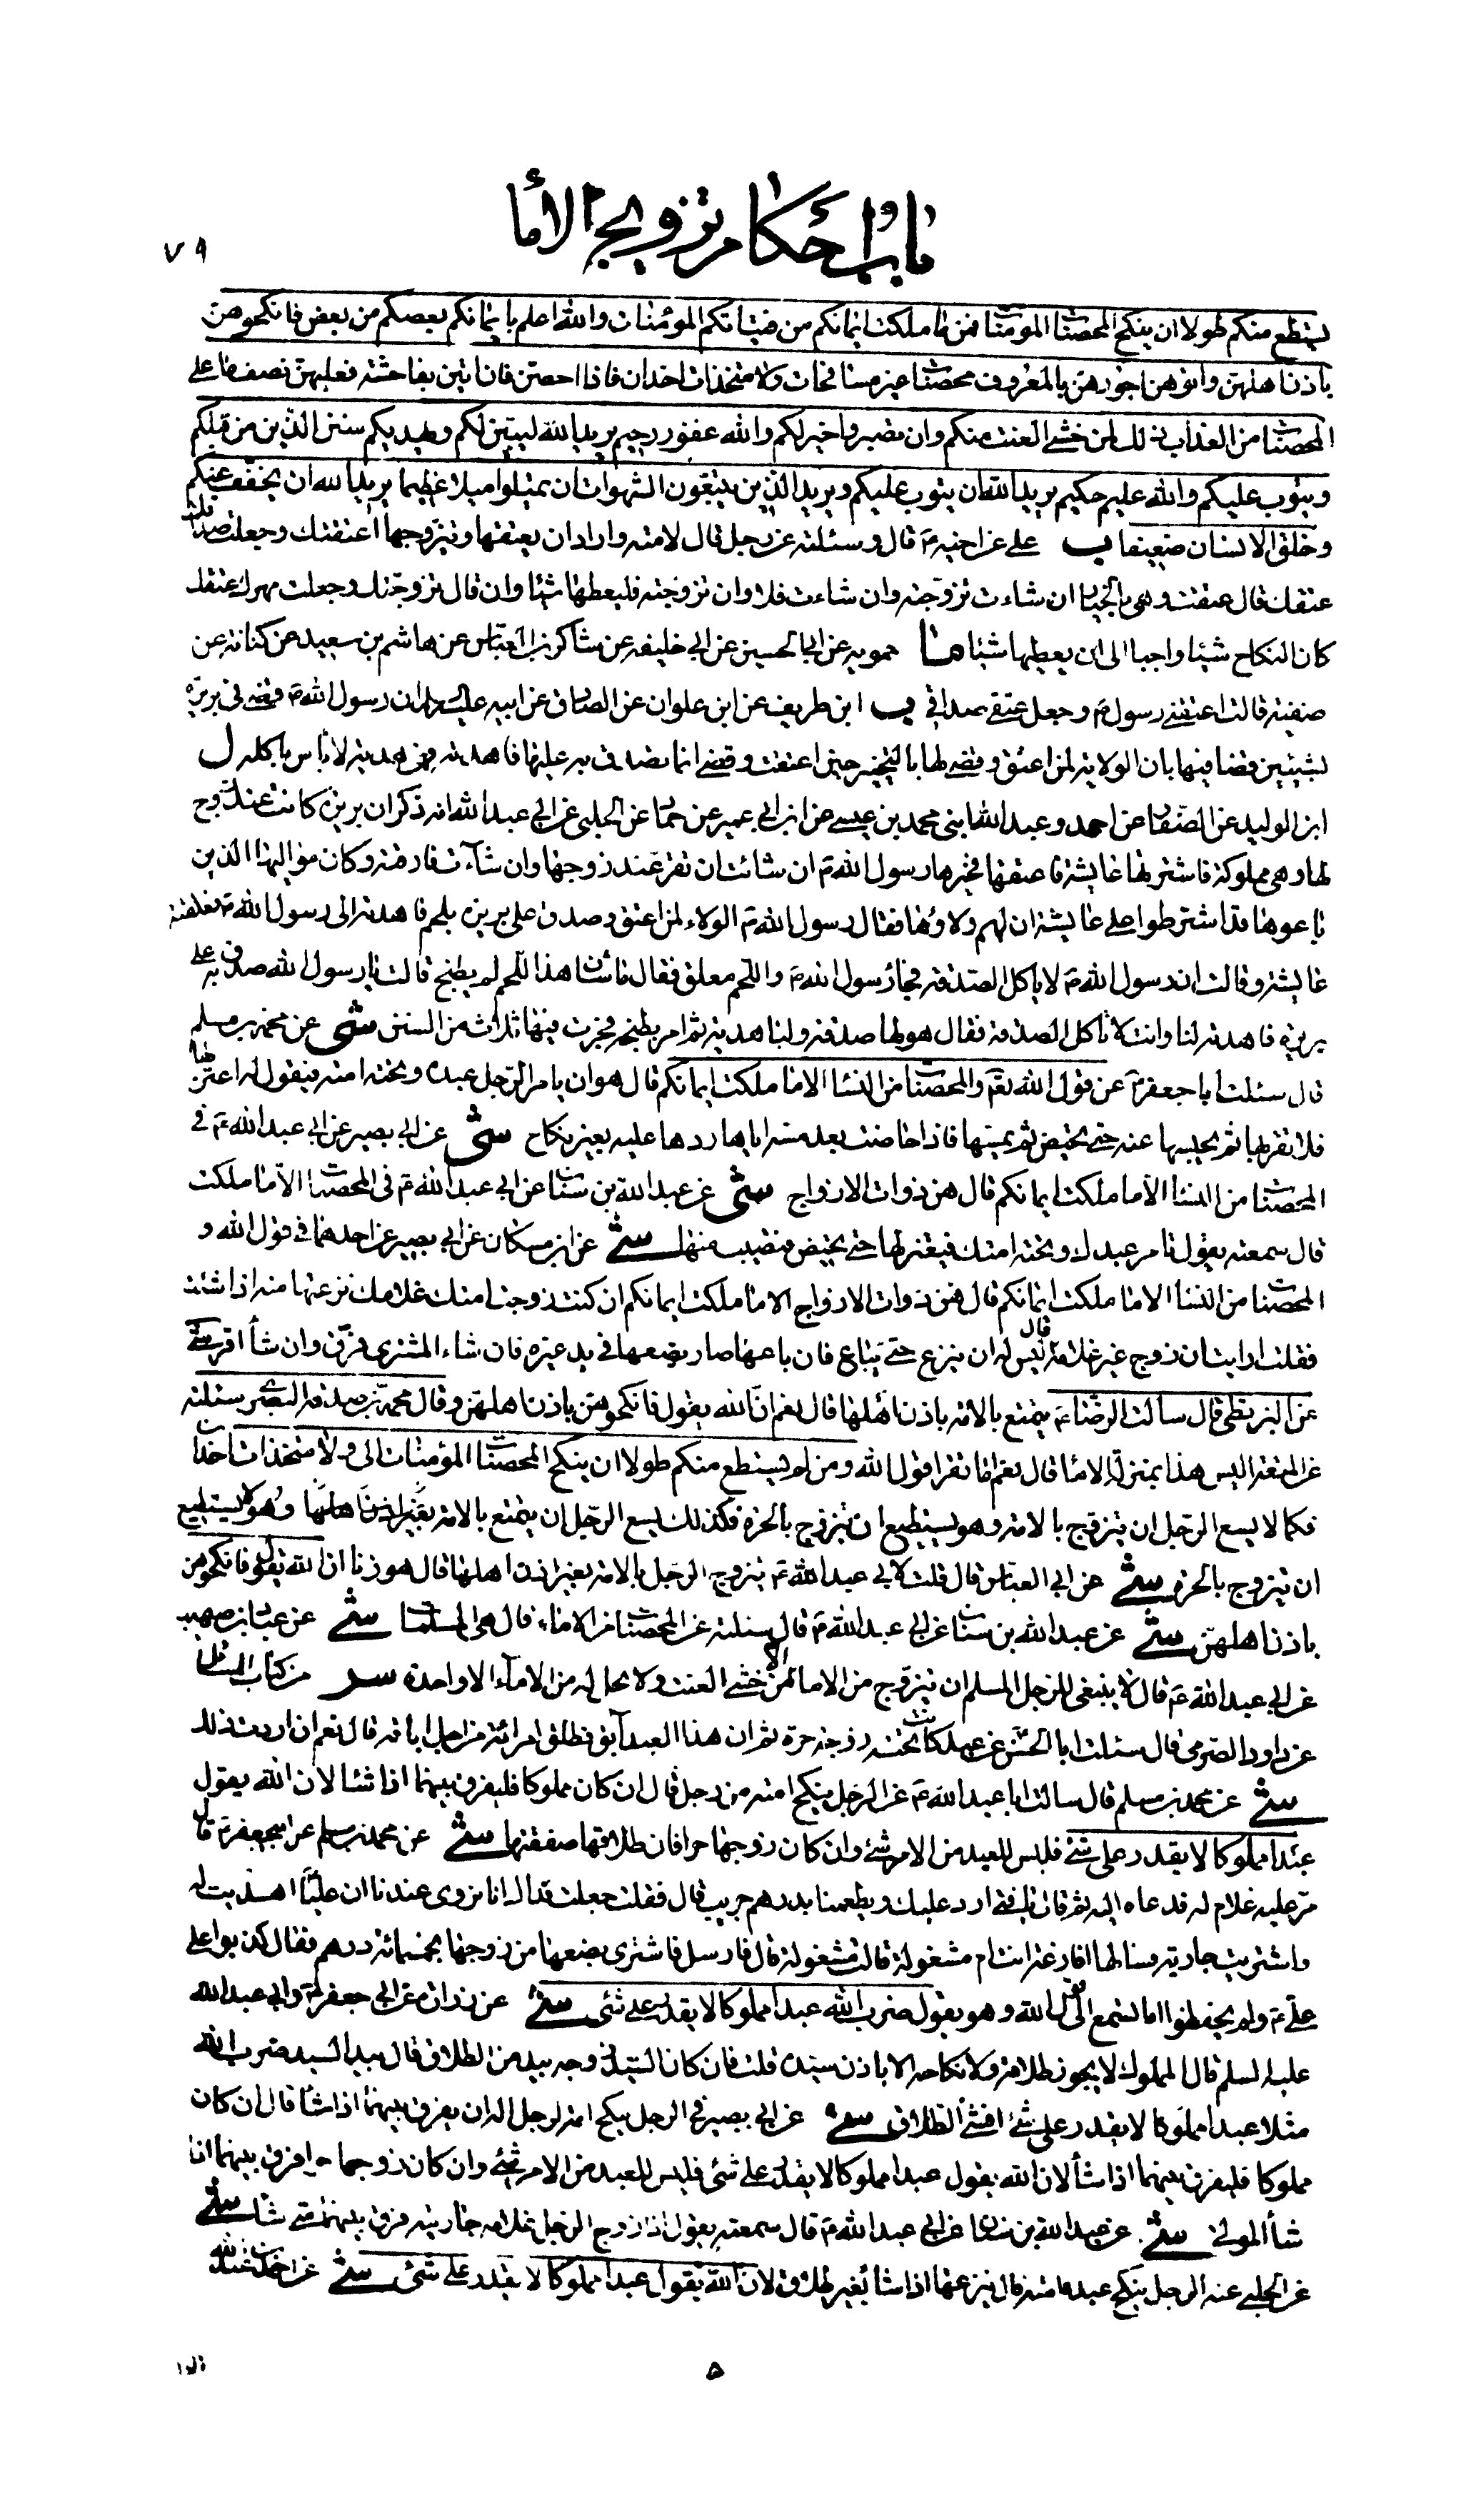 باب احكام تزويج الاماء
٧٩
يستطع منكم طولا ان ينكح المحصنات المومنات فمن ما ملكت ايمانكم من فتياتكم المؤمنات والله اعلم بايمانكم بعضكم من بعض فانكحوهن
باذن اهلهن واتوهن اجورهن بالمعروف محصنات غير مسافحات ولا متخذات اخدان فاذا احصن فان اتين بفاحشة فعليهن نصف ما على
المحصنات من العذاب ذلك لمن خشى العنت منكم وان تصبروا خير لكم والله غفور رحيم يريد الله ليبين لكم ويهديكم سنن الذين من قبلكم
ويتوب عليكم والله عليم حكيم يريد الله ان يتوب عليكم ويريد الذين يتبعون الشهوات ان تميلوا ميلا عظيما يريد الله ان يخفف عنكم
وخلق الانسان ضعيفا ب على عن اخيه ع قال وسئلته عن رجل قال لامته واراد ان يعتقها ويتزوجها اعتقتك وجعلت صداقك
عتقك قال عتقت وهى بالخيار ان شاءت تزوجته وان شاءت فلا وان تزوجته فليعطها شيئا وان قال تزوجتك وجعلت مهرك عتقك
كان النكاح شيئا واجبا الى ان يعطيها شيئا ما حمويه عن ابى الحسين عن ابى خليفه عن شاكر بن العباس عن هاشم بن سعيد عن كنانة عن
صفية قالت اعتقنى رسول ص وجعل عتقى صداقى ب ابن طريف عن ابن علوان عن الصادق عن ابيه عليه ان رسول الله ص قضى فى بريره
بشيئين قضا فيها بان الولاية لمن اعتق وقضى لها بالتخيير حين اعتقت وقضى انما تصدق به عليها فاهدته فهى هدية لا باس باكله ل
ابن الوليد عن الصفار عن احمد وعبد الله ابنى محمد بن عيسى عن ابن ابى عمير عن حماد عن الحلبى عن ابى عبد الله انه ذكر ان بريرة كانت عند زوج
لها وهى مملوكة فاشترتها عايشة فاعتقتها فخيرها رسول الله ص ان شائت ان تقر عند زوجها وان شاءت فارقته وكان مواليها الذين
باعوها قد اشترطوا على عايشة ان لهم ولاؤها فقال رسول الله ص الولاء لمن اعتق وصدق على بريرة بلحم فاهدته الى رسول الله ص فعلقته
عايشة وقالت ان رسول الله ص لا ياكل الصدقة فجاء رسول الله ص واللحم معلق فقال ما شان هذا اللحم لم يطبخ قالت يا رسول الله صدق به على
بريرة فاهدته لنا وانت لا تاكل الصدقة فقال هو لها صدقة ولنا هدية ثم امر بطبخه فجرت فيها ثلاث من السنن شى عن محمد بن مسلم
قال سئلت ابا جعفر ع عن قول الله تع والمحصنات من النساء الا ما ملكت ايمانكم قال هو ان يامر الرجل عبده وتحته امته فيقول له اعتزلها
فلا تقربها ثم يحبسها عنه حتى تحيض ثم يمسها فاذا حاضت بعد مسه اياها ردها عليه بغير نكاح شى عن ابى بصير عن ابى عبد الله ع فى
المحصنات من النساء الا ما ملكت ايمانكم قال هن ذوات الازواج شى عن عبد الله بن سنان عن ابى عبد الله ع فى المحصنات الا ما ملكت
قال سمعته يقول تامر عبدك وتحته امتك فيعتزلها حتى تحيض فتصيب منها شى عن ابن مسكان عن ابى بصير عن احدهما فى قول الله و
المحصنات من النساء الا ما ملكت ايمانكم قال هن ذوات الازواج الا ما ملكت ايمانكم ان كنت زوجت امتك غلامك نزعتها منه اذا شئت
فقلت ارايت ان زوج غير غلامه قال ليس له ان ينزع حتى تباع فان باعها صار بضعها فى يد غيره فان شاء المشترى فرق وان شاء اقر شى
عن البزنطى قال سالت الرضا ع يتمتع بالامة باذن اهلها قال نعم ان الله يقول فانكحوهن باذن اهلهن وقال محمد بن صدقة البصرى سئلته
عن المتعة اليس هذا بمنزلة الاماء قال نعم اما تقرا قول الله ومن لم يستطع منكم طولا ان ينكح المحصنات المؤمنات الى ولا متخذات اخدان
فكما لا يسع الرجل ان يتزوج بالامة وهو يستطيع ان يتزوج بالحرة فكذلك يسع الرجل ان يتمتع بالامة بغير اذن اهلها وهو يستطيع
ان يتزوج بالحرة شى عن ابى العباس قال قلت لابى عبد الله ع يتزوج الرجل بالامة بغير اذن اهلها قال هو زنا ان الله يقول فانكحوهن
باذن اهلهن شى عن عبد الله بن سنان عن ابى عبد الله ع قال سئلته عن المحصنات من الاماء قال هن المسلمات شى عن عباد بن صهيب
عن ابى عبد الله ع قال لا ينبغى للرجل المسلم ان يتزوج من الاماء الا لمن خشى العنت ولا يحل له من الاماء الا واحدة سر من كتاب المسائل
عن داود الصرمى قال سئلت ابا الحسن عن عبد كانت تحته زوجة حرة ثم ان هذا العبد ابق فطلق امرائته من اجل اباقه قال نعم ان اردت ذلك
شى عن محمد بن مسلم قال سالت ابا عبد الله ع عن الرجل ينكح امته من رجل قال ان كان مملوكا فليفرق بينهما اذا شاء لان الله يقول
عبدا مملوكا لا يقدر على شئ فليس للعبد من الامر شئ وان كان زوجها حرا فان طلاقها صفقتها شى عن محمد بن مسلم عن ابى جعفر ع قال
مر عليه غلام له فدعاه اليه ثم قال يا فتى ارد عليك ويطعمنا بدرهم خربيب قال فقلت جعلت فداك انا نروى عندنا ان عليا اهديت له
واشتريت جارية وسالها افارغة انت ام مشغولة قالت مشغولة قال فارسل فاشترى بضعها من زوجها بخمسمائة درهم فقال كذبوا على
على ع ولم يحفظوا اما تسمع الى قول الله وهو يقول ضرب الله عبدا مملوكا لا يقدر على شئ شى عن زرارة عن ابى جعفر ع وابى عبد الله
عليه السلم قال المملوك لا يجوز طلاقه ولا نكاحه الا باذن سيده قلت فان كان السيد زوجه بيد من الطلاق قال بيد السيد ضرب الله
مثلا عبدا مملوكا لا يقدر على شئ افشئ الطلاق شى عن ابى بصير فى الرجل ينكح امته لرجل اله ان يفرق بينهما اذا شاء قال ان كان
مملوكا فليفرق بينهما اذا شاء لان الله يقول عبدا مملوكا لا يقدر على شئ فليس للعبد من الامر شئ وان كان زوجها حرا فرق بينهما اذا
شاء المولى شى عن عبد الله بن سنان عن ابى عبد الله ع قال سمعته يقول اذا زوج الرجل غلامه جاريته فرق بينهما متى شاء شى
عن الحلبى عنه الرجل ينكح عبده امته قال ينزعها اذا شاء بغير طلاق لان الله يقول عبدا مملوكا لا يقدر على شئ شى عن احمد بن عبد الله